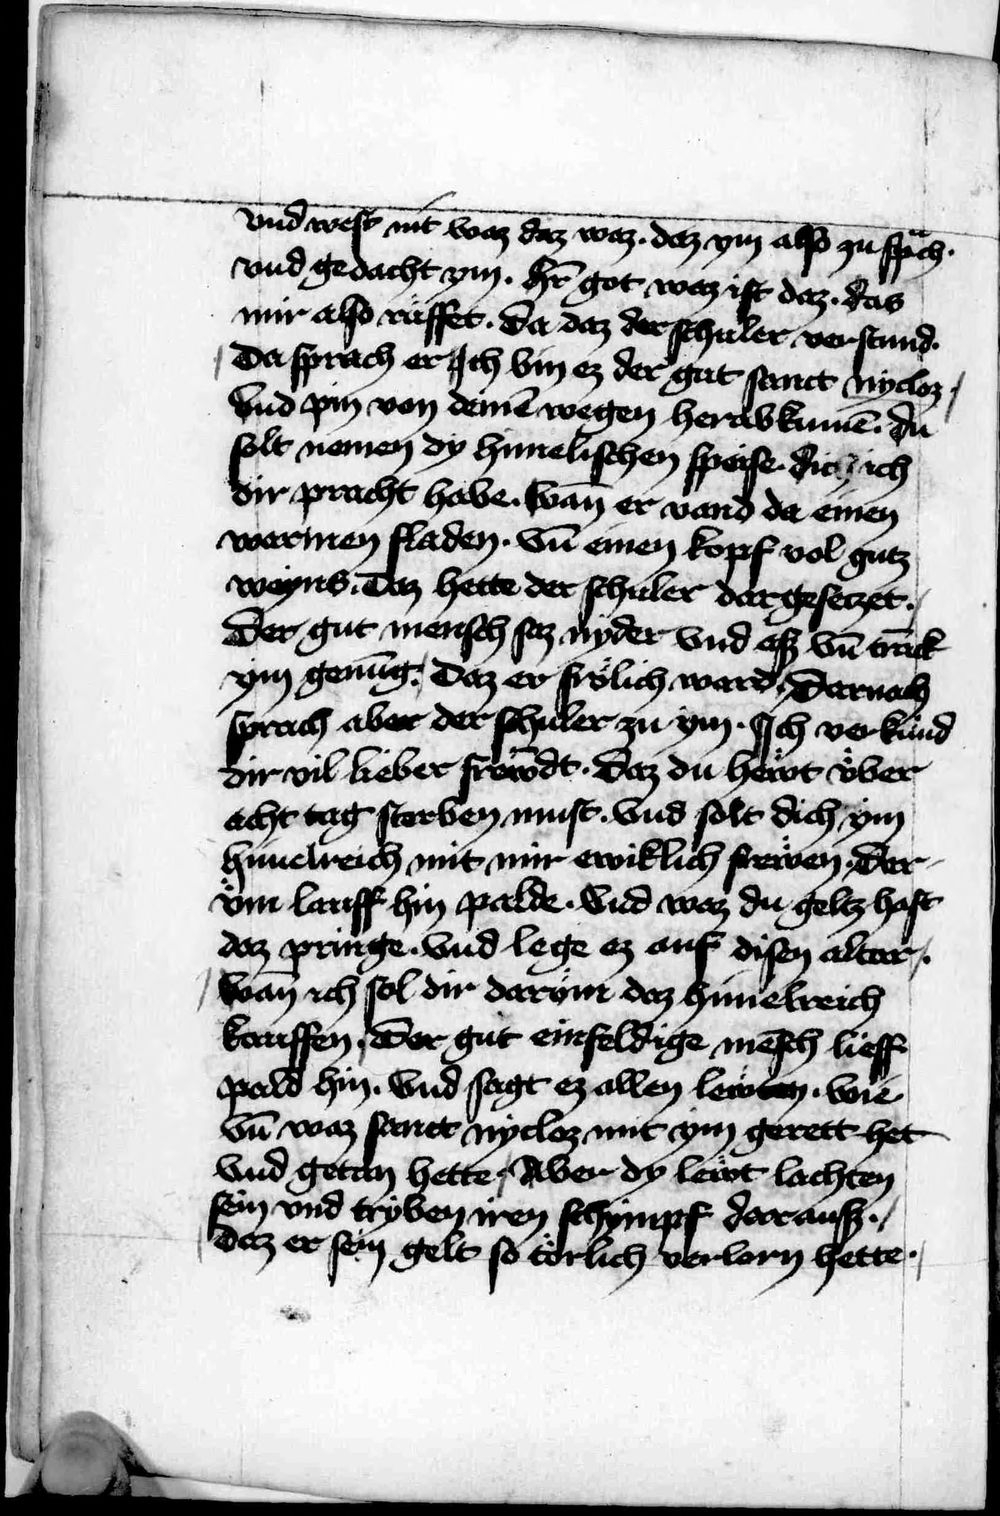 vnd west nit waz daz waz. daz ym also zu spͣch.
vnd gedacht ym. Hr̄ got waz ist daz. das
mir also rüffet. Da daz der schuler verstund.
Da sprach er Jch bin ez der gut sanct nycloz.
Vnd pin von deinē wegen herabkumē. du
solt nemen dy himelischen speise. die ich
dir pracht habe. Wan̄ er vand da einen
warmen fladen. vn̄ einen kopf vol gutz
weyns. Daz hette der schuler dargeseczet.
Der gut mensch saz nyder vnd eß vn̄ tranck
ym genu̇g. Daz er frölich ward. Darnach
sprach aber der schuler zu ym. Jch verkünd
dir vil lieber frewndt. Daz du hewt vber
acht tag sterben must. Vnd solt dich ym
himelreich mit mir ewiklich frewen. Dar-
vm lauff hin palde. Vnd waz du geltz hast
daz pringe. Vnd lege ez auf disen altar.
Wan̄ ich sol dir darvm daz himelreich
kauffen. Der gut einfeldige mēsch lieff
pald hin. Vnd sagt ez allen lewten. wie
vn̄ waz sanct nycloz mit ym gerett het
Vnd getan hette. Aber dy lewt lachten
sein vnd tryben iren schimpf darauß.
Daz er sein gelt so törlich verlorn hette.